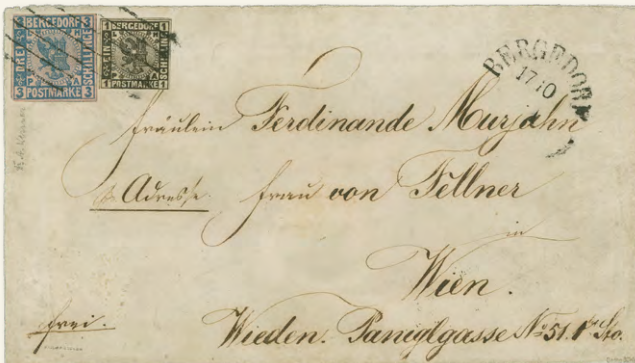 BERGEDORF
DREI
SCHILLINGE
POSTMARKE
3 3
3 3
BERGEDORF
EIN
POSTMARKE
1 1
1 1
BERGEDORF
17 10
Fräulein Ferdinande Murjahn
Adresse Frau von Fellner
in
Wien.
frei.
Wieden. Paniglgasse No 51. 1ter Sto.